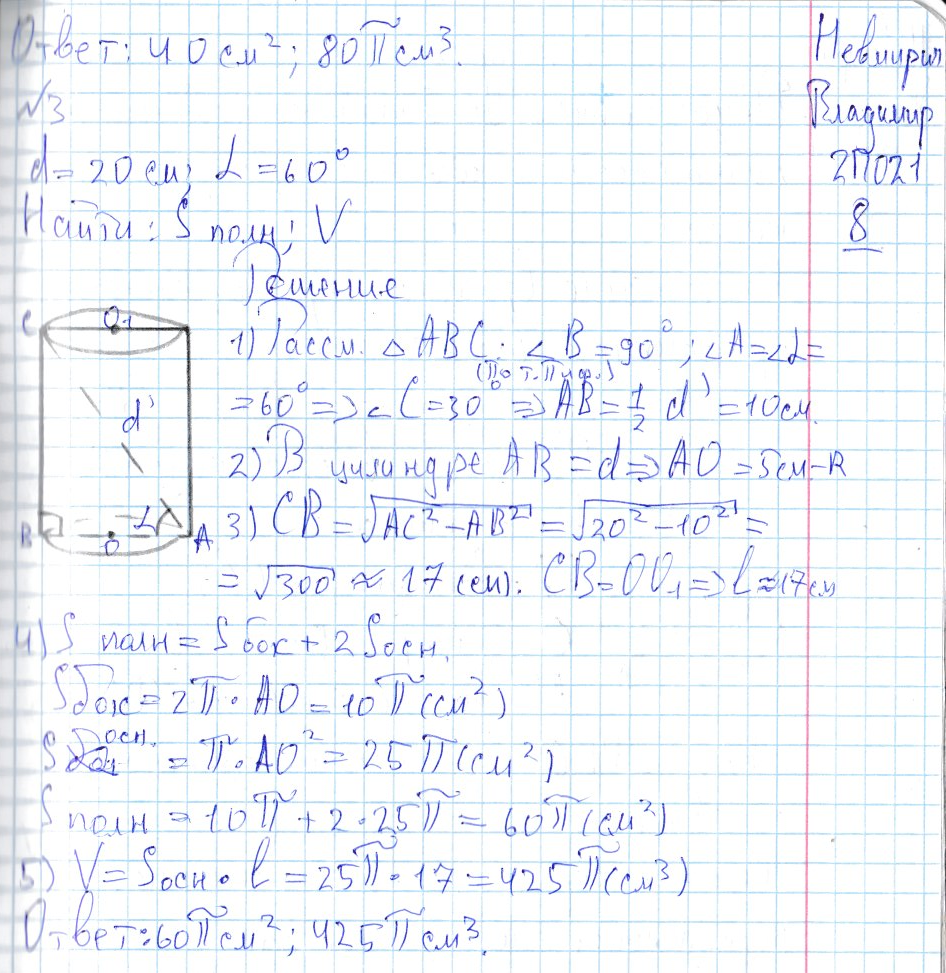 Ответ: 40 см²; 80π см³.
Невмирич
Владимир
2П021
8
№3
d = 20 см; L = 60°
Найти: S полн; V
Решение
1) Рассм. △ ABC: ∠B = 90°; ∠A = ∠L =
(По т. Пиф.)
= 60° => ∠C = 30° => AB = 1/2 d' = 10 см.
2) В цилиндре AB = d => AO = 5 см - R
3) CB = √AC² - AB² = √20² - 10² =
= √300 ≈ 17 (см). CB = OO₁ => l ≈ 17 см
C O₁
d'
L
B O A
4) S полн = S бок + 2 S осн.
S бок = 2π · AO = 10π (см²)
S осн. = π · AO² = 25π (см²)
S полн = 10π + 2 · 25π = 60π (см²)
5) V = S осн · l = 25π · 17 = 425π (см³)
Ответ: 60π см²; 425π см³.